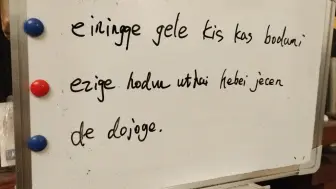 eiringge gele kis kas boduni
ezige hodun uthai hebei jecen
de dojoge.